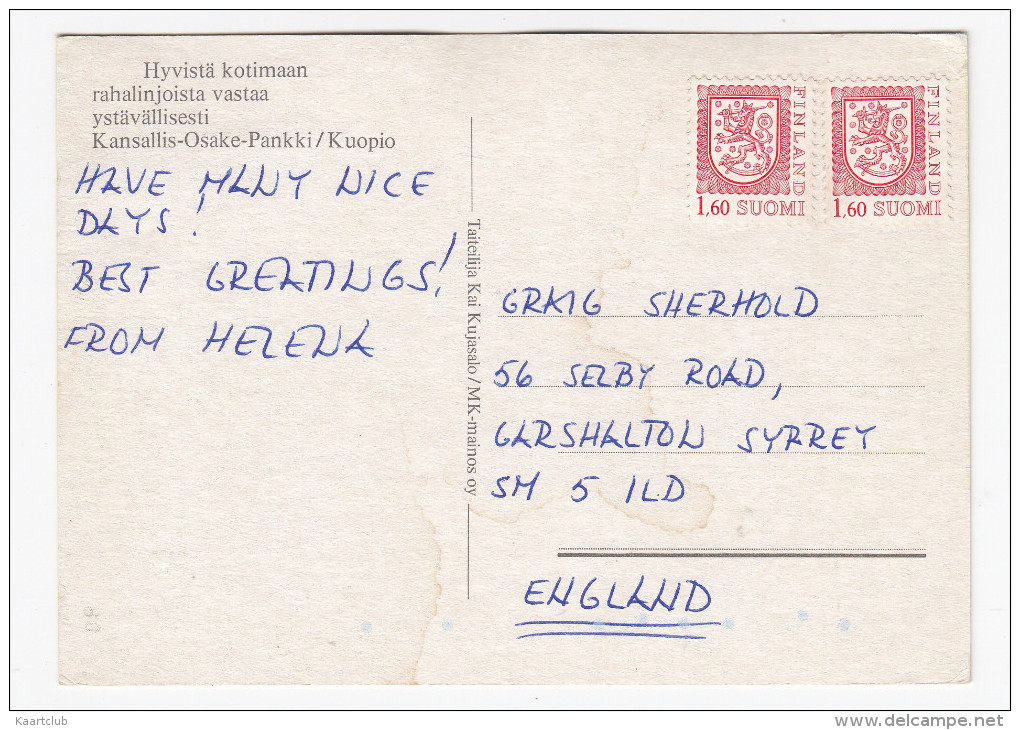 Hyvistä kotimaan
rahalinjoista vastaa
ystävällisesti
Kansallis-Osake-Pankki/Kuopio
HAVE MANY NICE
DAYS!
BEST GREATINGS!
FROM HELENA
Taiteilija Kai Kujasalo/MK-mainos oy
FINLAND
1,60 SUOMI
FINLAND
1,60 SUOMI
GRAIG SHERHOLD
56 SELBY ROAD,
GARSHALTON SYRREY
SM 5 1LD
ENGLAND
Kaartclub
www.delcampe.net